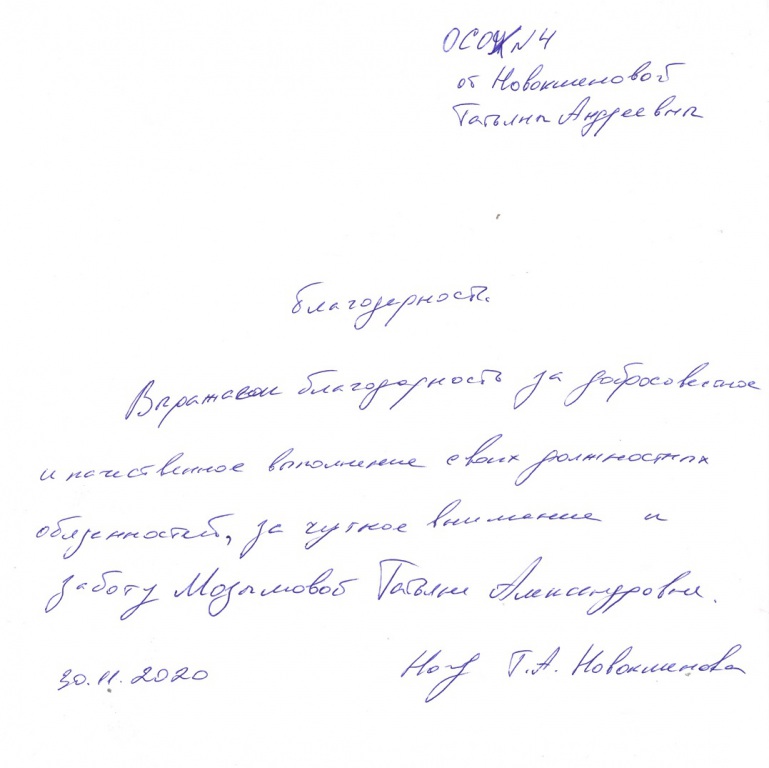 ОСО №4
от Новокшеновой
Татьяны Андреевны
Благодарность.
Выражаем благодарность за добросовестное
и качественное выполнение своих должностных
обязанностей, за чуткое внимание и
заботу Мозымовой Татьяне Александровне.
30.11.2020 Т.А. Новокшенова